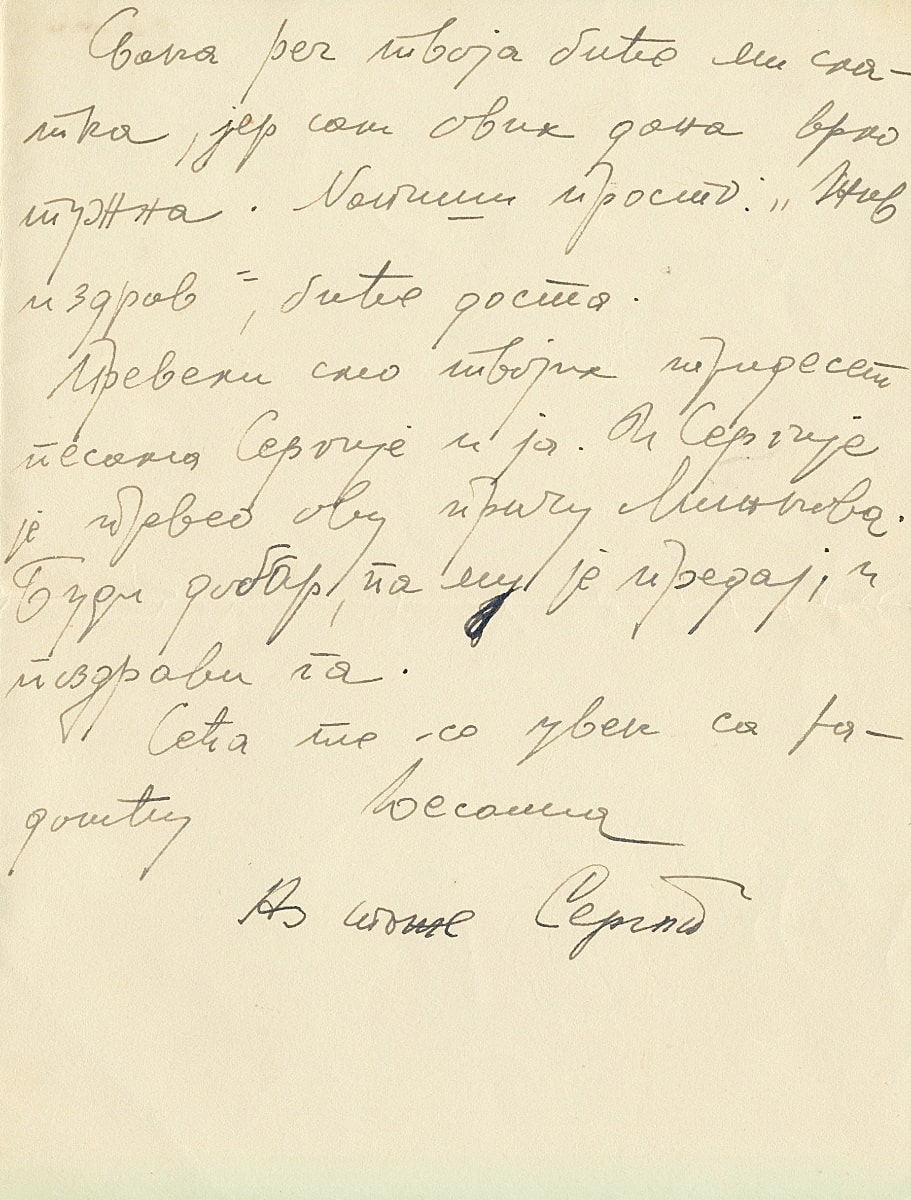 Свака реч твоја биће ми сла-
тка, јер сам ових дана врло
тужна. Напиши просто: „Жив
и здрав“, биће доста.
Превели смо твојих тридесет
песама Сергије и ја. И Сергије
је превео ову причу
Буди добар, па му је предај, и
поздрави га.
Сећа те се увек са ра-
дошћу Десанка
Аз тоже Сергей